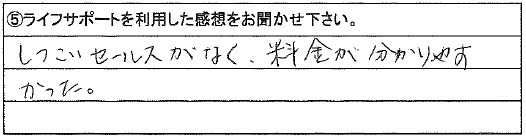 ⑤ライフサポートを利用した感想をお聞かせ下さい。
しつこいセールスがなく、料金が分かりやす
かった。